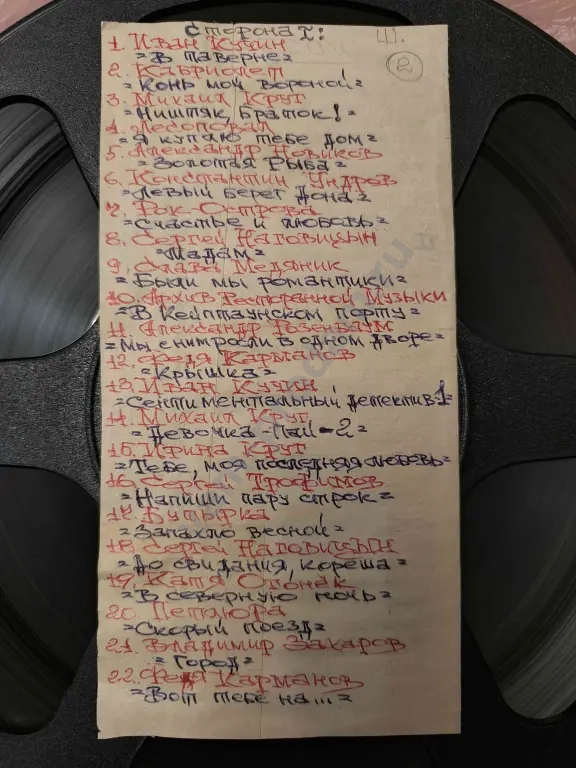 Сторона I:
Ш.
2
1. Иван Кучин
= В таверне =
2. Кабриолет
= Конь мой вороной =
3. Михаил Круг
= Ништяк, браток! =
4. Лесоповал
= Я куплю тебе дом =
5. Александр Новиков
= Золотая Рыба =
6. Константин Ундров
= Левый берег Дона =
7. Рок-Острова
= Счастье и любовь =
8. Сергей Наговицын
= Мадам =
9. Слава Медяник
= Были мы романтики =
10. Архив Ресторанной Музыки
= В Кейптаунском порту =
11. Александр Розенбаум
= Мы с ним росли в одном дворе =
12. Федя Карманов
= Крышка =
13. Иван Кучин
= Сентиментальный детектив-1 =
14. Михаил Круг
= Девочка-Пай-2 =
15. Ирина Круг
= Тебе, моя последняя любовь =
16. Серёга Трофимов
= Напиши пару строк =
17. Бутырка
= Запахло весной =
18. Сергей Наговицын
= До свидания, кореша =
19. Катя Огонёк
= В северную ночь =
20. Петлюра
= Скорый поезд =
21. Владимир Захаров
= Город =
22. Федя Карманов
= Вот тебе на... =